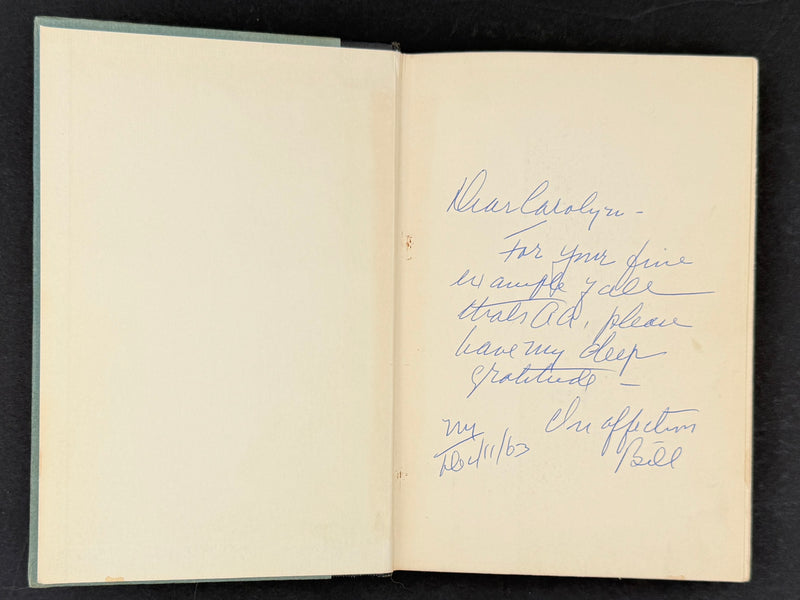 Dear Carolyn -
For your fine
example of all
thats AA, please
have my deep
gratitude -
In affection
Bill
NY
Dec/11/63